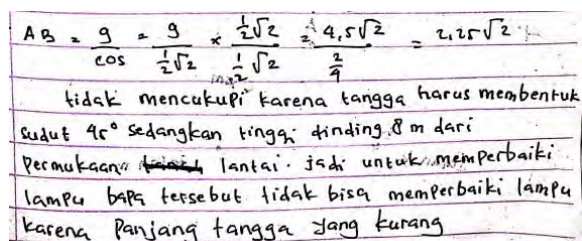 AB = 9/cos = 9/(½√2) × ½√2/½√2 = 4,5√2/(2/4) = 2,25√2
tidak mencukupi karena tangga harus membentuk
sudut 45° sedangkan tinggi dinding 8 m dari
Permukaan lantai. jadi untuk memperbaiki
lampu bapa tersebut tidak bisa memperbaiki lampu
karena Panjang tangga yang kurang